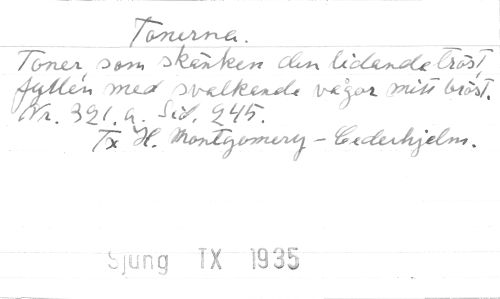 Tonerna.
Toner, som skänken den lidande tröst
fyllen med svalkande vågor mitt bröst.
Nr. 321.a. Sid. 245.
Tx H. Montgomery-Cederhjelm.
Sjung IX 1935